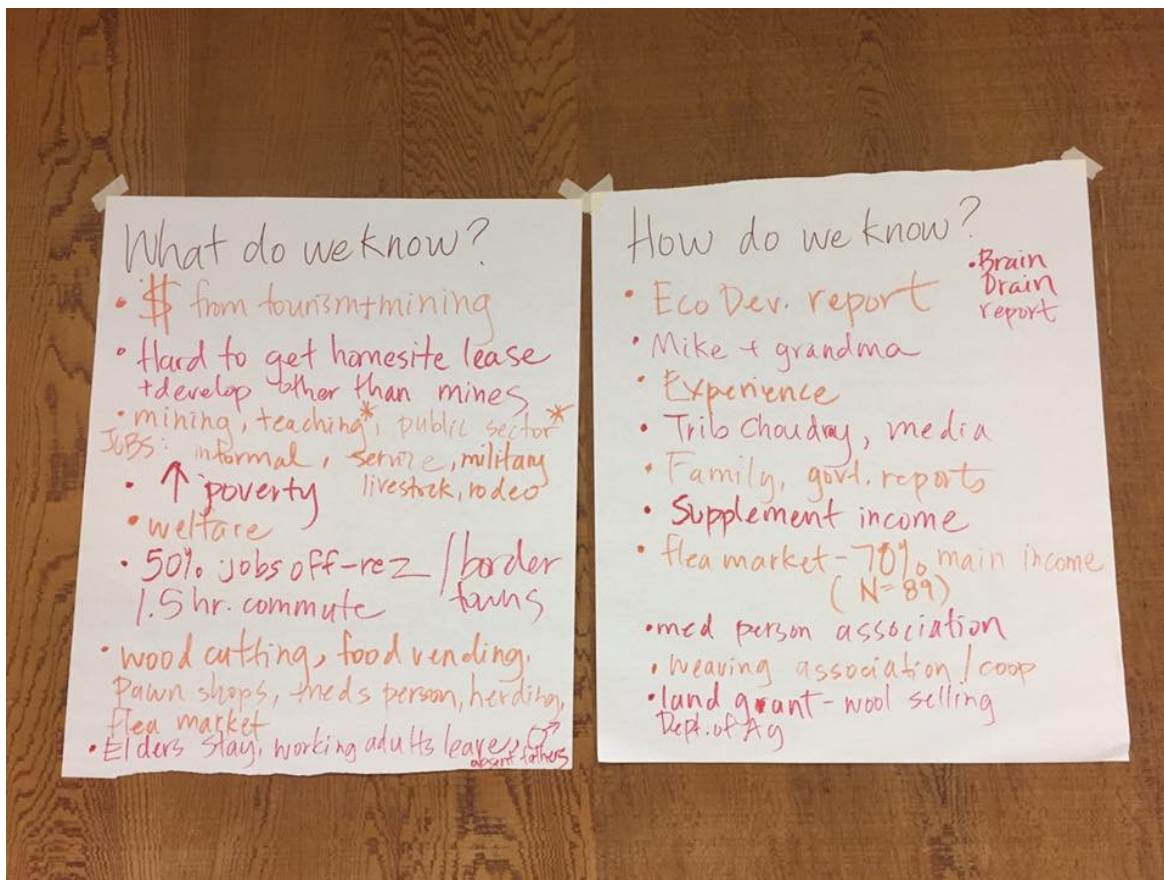 What do we know?
• $ from tourism+mining
• Hard to get homesite lease
+develop other than mines
• mining, teaching*, public sector*
JOBS: informal, service, military
livestock, rodeo
• ↑ poverty
• welfare
• 50% jobs off-rez / border
towns
1.5 hr. commute
• wood cutting, food vending,
pawn shops, meds person, herding,
flea market
• Elders stay, working adults leave, ♂
absent fathers
How do we know?
• Brain
Drain
report
• Eco Dev. report
• Mike + grandma
• Experience
• Trib Choudry, media
• Family, govt. reports
• Supplement income
• flea market - 70% main income
(N=89)
• med person association
• weaving association / coop
• land grant - wool selling
Dept. of Ag